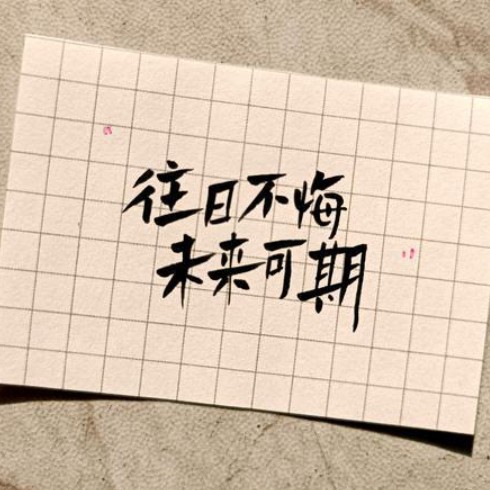 往日不悔
未来可期